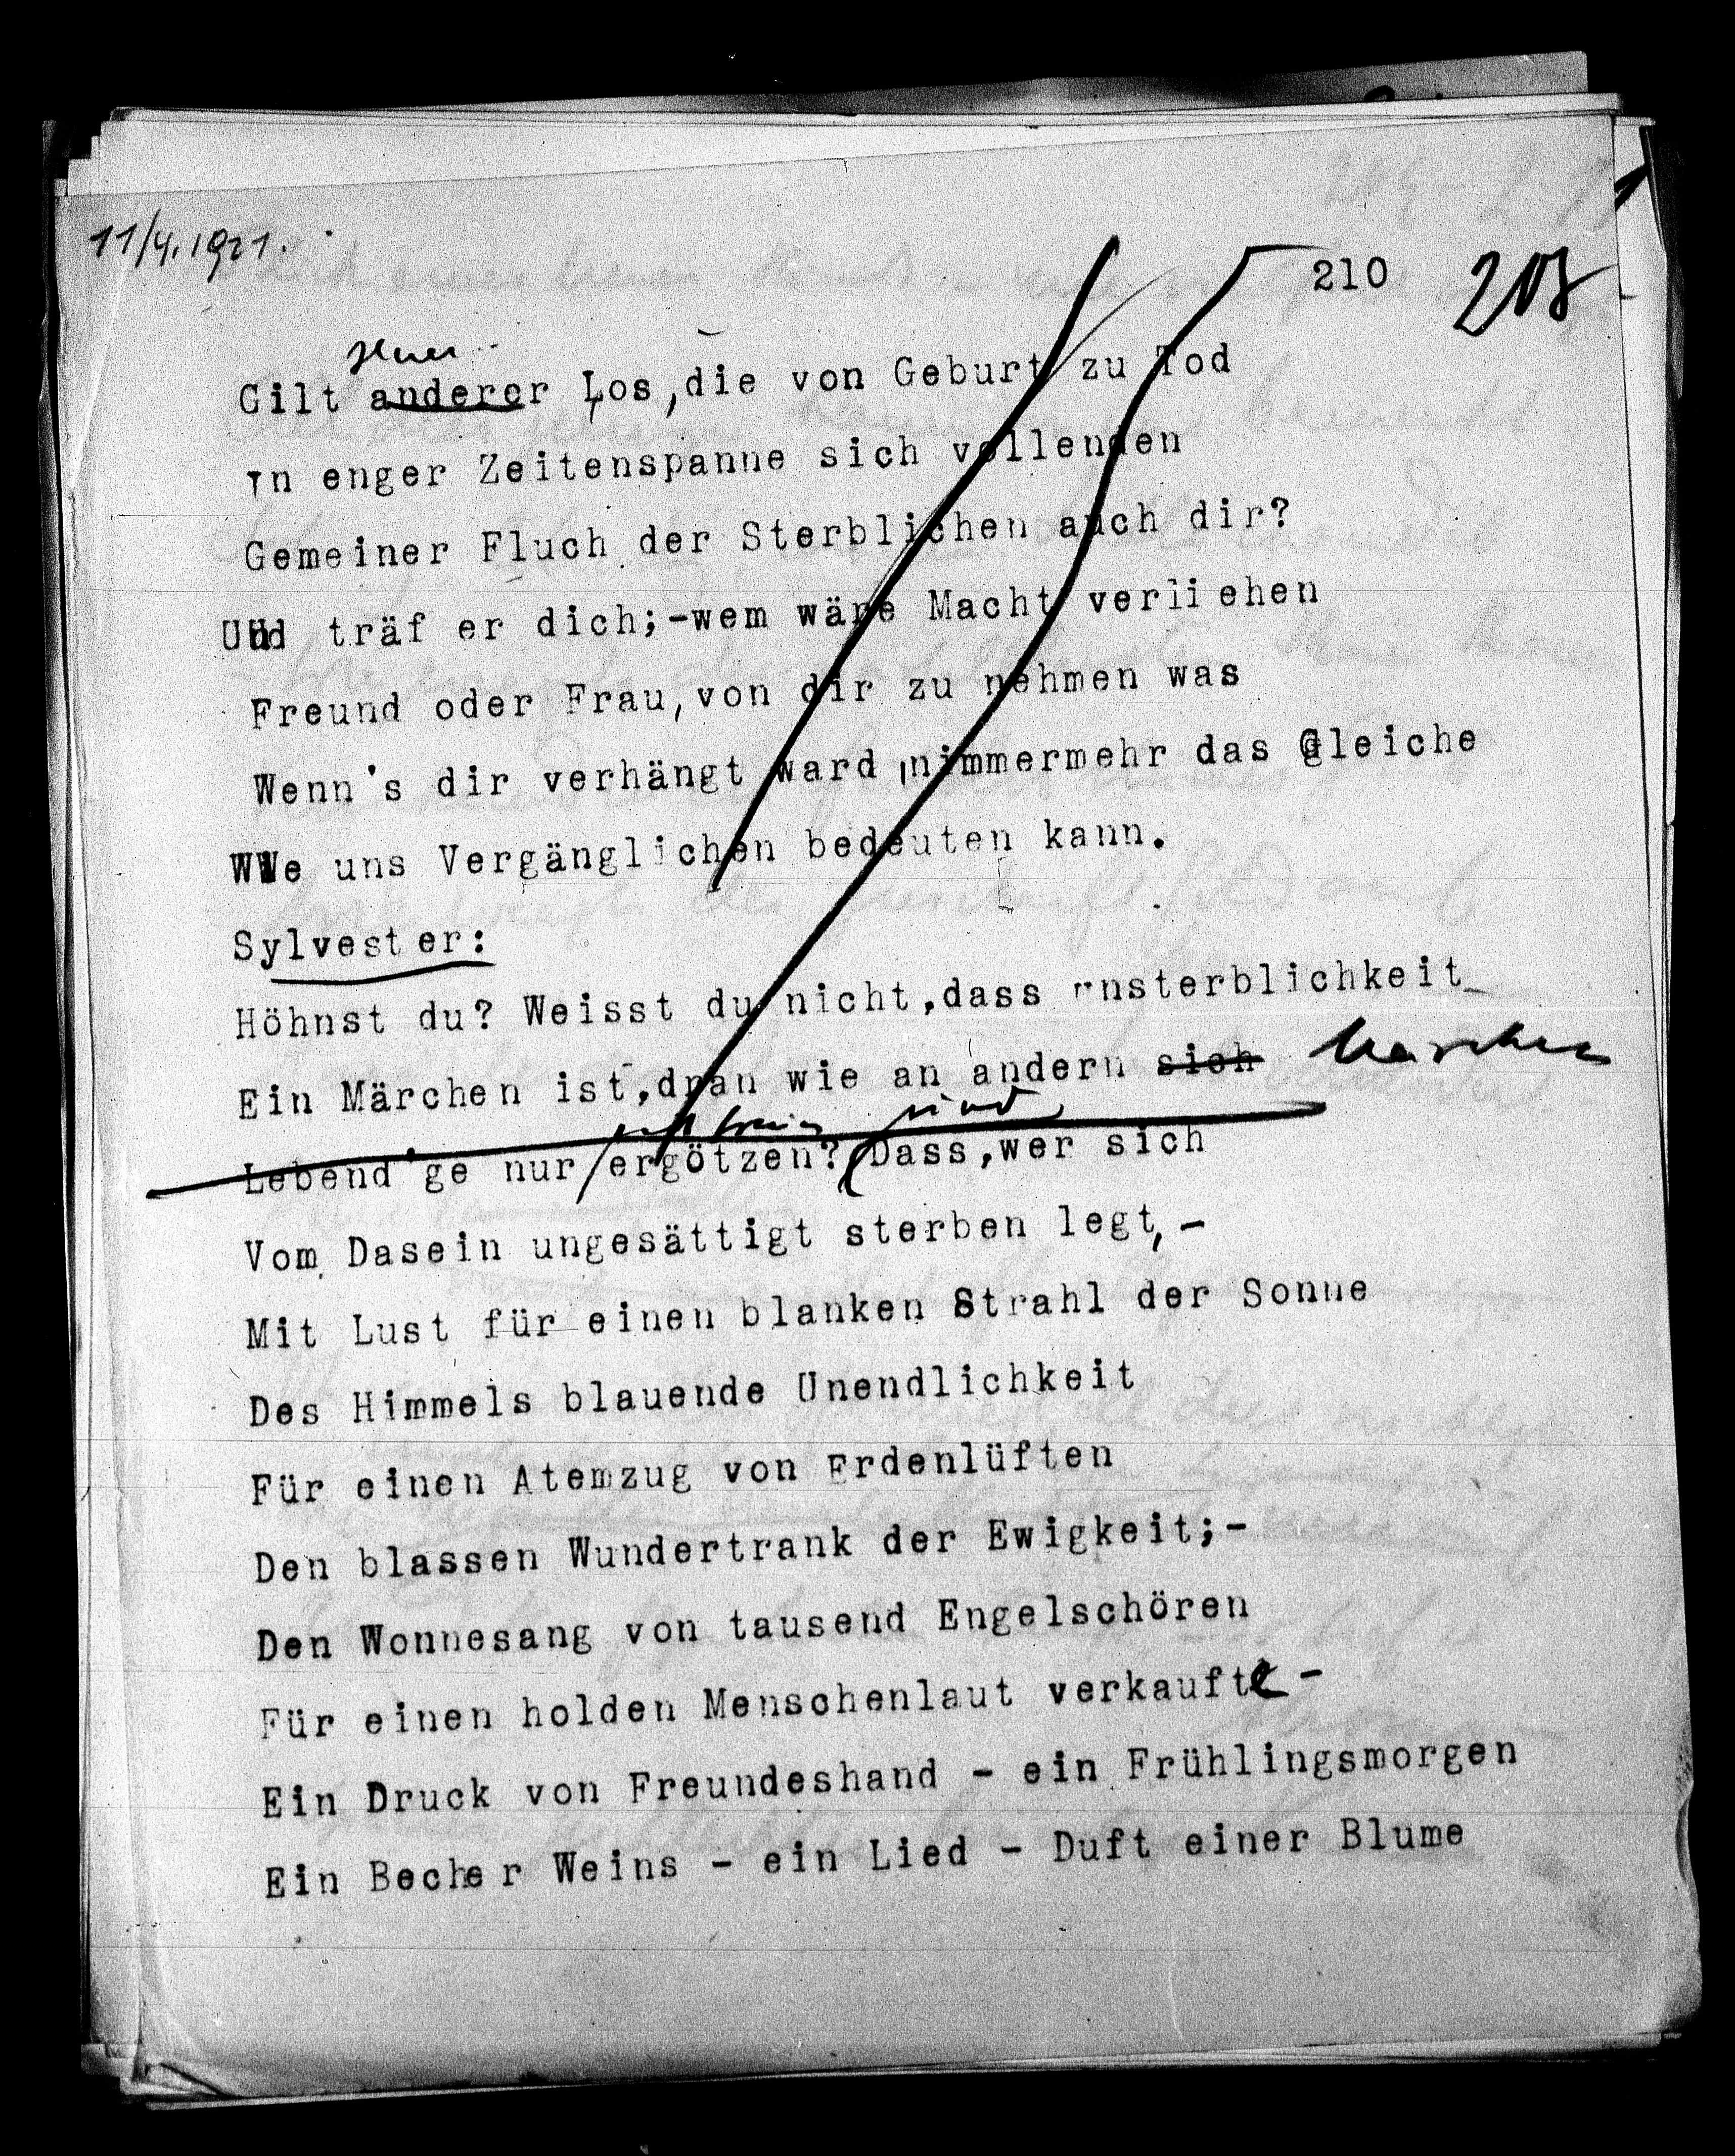 11/4. 1921.
210 208
jener
Gilt anderer Los, die von Geburt zu Tod
In enger Zeitenspanne sich vollenden
Gemeiner Fluch der Sterblichen auch dir?
Und träf er dich;-wem wäre Macht verliehen
Freund oder Frau, von dir zu nehmen was
Wenn's dir verhängt ward, nimmermehr das Gleiche
Wie uns Vergänglichen bedeuten kann.
Sylvester:
Höhnst du? Weisst du nicht, dass Unsterblichkeit
Ein Märchen ist, dran wie an andern sich Märchen
sind
Lebend'ge nur ergötzen? Dass, wer sich
Vom Dasein ungesättigt sterben legt,-
Mit Lust für einen blanken Strahl der Sonne
Des Himmels blauende Unendlichkeit
Für einen Atemzug von Erdenlüften
Den blassen Wundertrank der Ewigkeit;-
Den Wonnesang von tausend Engelschören
Für einen holden Menschenlaut verkaufte -
Ein Druck von Freundeshand - ein Frühlingsmorgen
Ein Becher Weins - ein Lied - Duft einer Blume